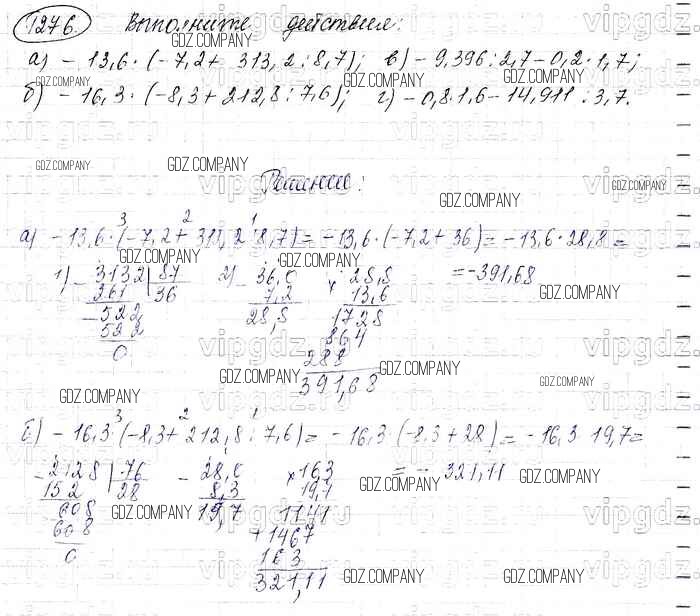 1276. Выполните действия:
а) - 13,6 · (- 7,2 + 313,2 : 8,7); в) - 9,396 : 2,7 - 0,2 · 1,7;
б) - 16,3 · (- 8,3 + 212,8 : 7,6); г) - 0,8 · 1,6 - 14,911 : 3,7.
Решение:
3 2 1
а) - 13,6 · (- 7,2 + 313,2 : 8,7) = - 13,6 · (- 7,2 + 36) = - 13,6 · 28,8 =
= - 391,68
1) - 3132 | 87
261 36
- 522
522
0
2) - 36,0
7,2
28,8
× 28,8
13,6
1728
864
288
391,68
3 2 1
б) - 16,3 · (- 8,3 + 212,8 : 7,6) = - 16,3 · (- 8,3 + 28) = - 16,3 · 19,7 =
= - 321,11
- 2128 | 76
152 28
608
608
0
- 28,0
8,3
19,7
× 163
19,7
1141
+ 1467
163
321,11
GDZ.COMPANY
vipgdz.ru